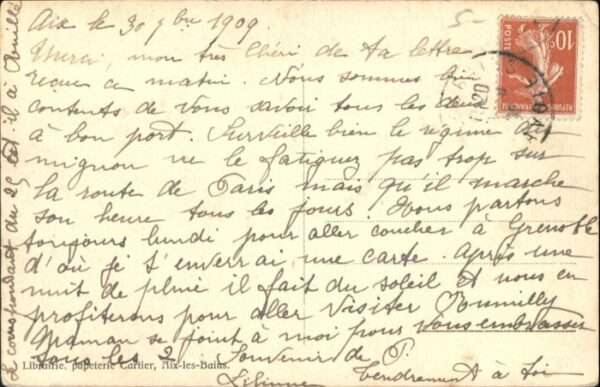 Aix le 30 7bre 1909.
Merci, mon très chéri de ta lettre
reçue ce matin. Nous sommes bien
contents de vous savoir tous les deux
à bon port. Surveille bien le régime de
mignon ne le fatiguez pas trop sur
la route de Paris mais qu'il marche
son heure tous les jours. Nous partons
toujours lundi pour aller coucher à Grenoble
d'où je t'enverrai une carte. Après une
nuit de pluie il fait du soleil et nous en
profiterons pour aller visiter Rumilly
Maman se joint à moi pour vous embrasser
tous les 2. Souvenir de P.
Tendrement à toi
Le correspondant du 25 est il à
Librairie, papeterie Cartier, Aix-les-Bains.
5-
10c
POSTES